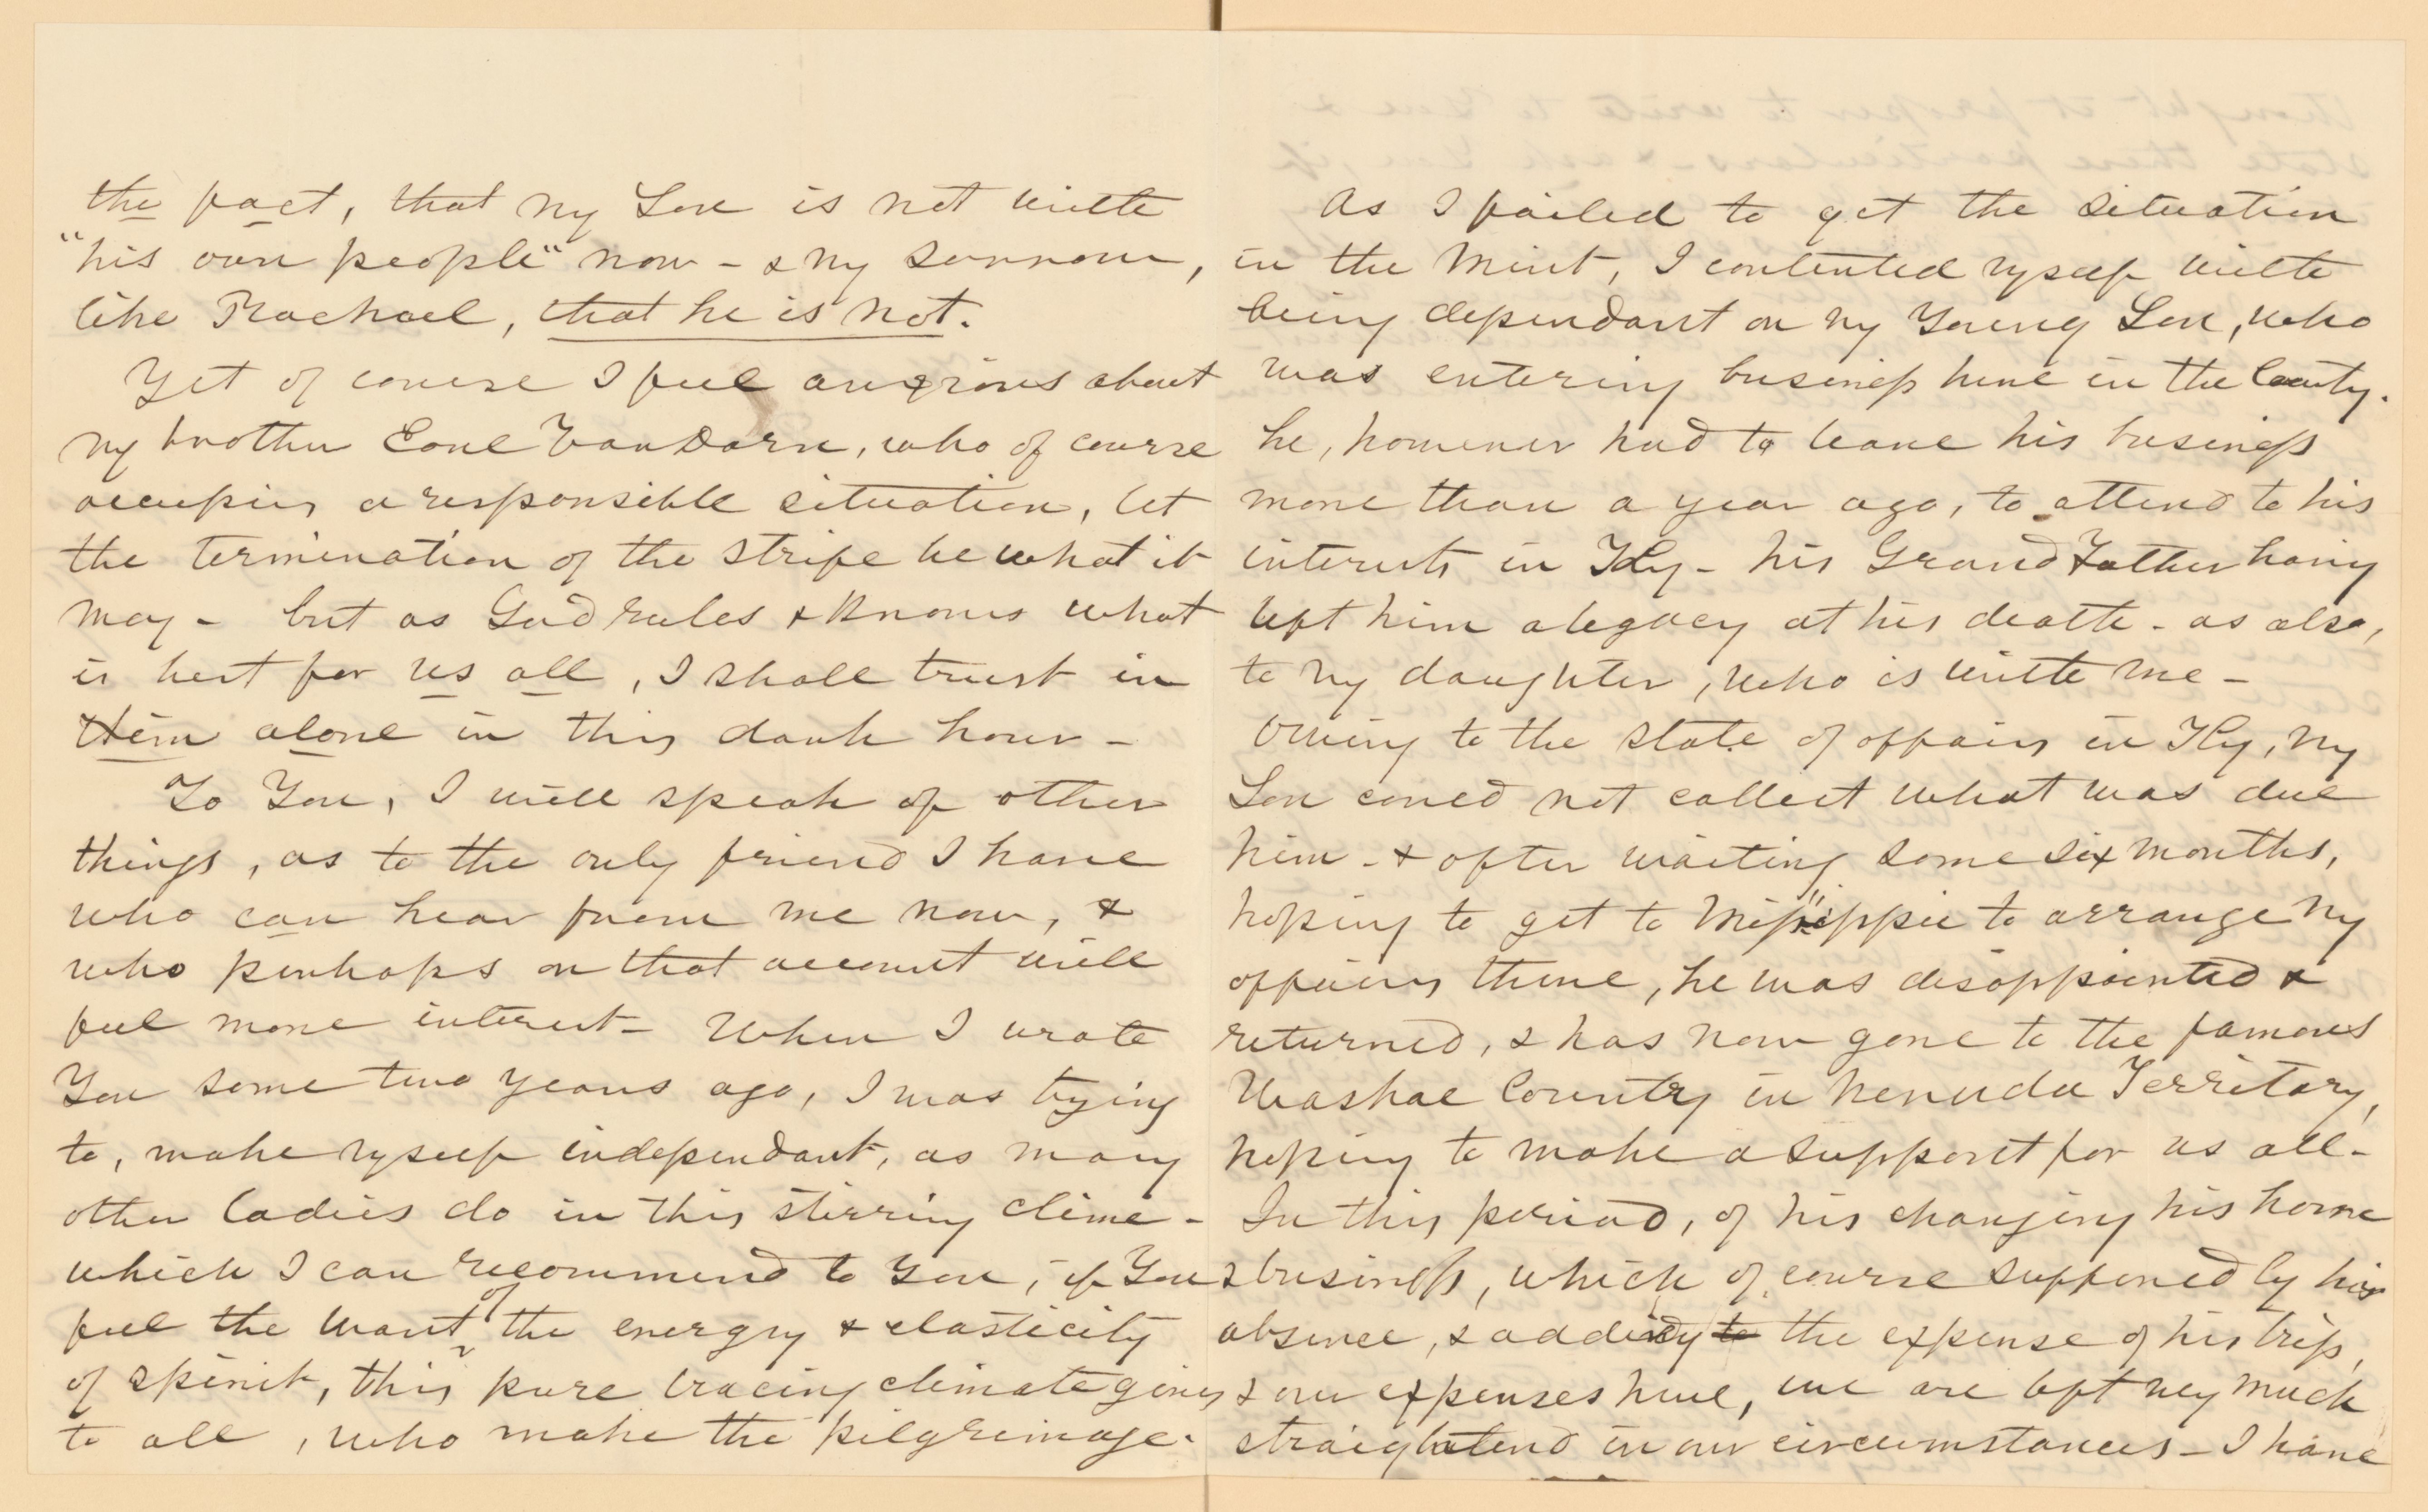 the fact, that my Son is not with
"his own people" now - & my sorrow,
like Rachael, that he is not.
Yet of course I feel anxious about
my brother Earl VanDorn, who of course
occupies a responsible situation, let
the termination of the strife be what it
may - but as God rules & knows what
is best for us all, I shall trust in
Him alone in this dark hour -
To You, I will speak of other
things, as to the only friend I have
who can hear from me now, &
who perhaps on that account will
feel more interest - When I wrote
You some two years ago, I was trying
to, make myself independant, as many
other ladies do in this stirring clime -
which I can recommend to You, if You
feel the want of the energy & elasticity
of spirit, this pure bracing climate gives
to all, who make the pilgrimage.
As I failed to get the situation
in the Mint, I contented myself with
being dependant on my Young Son, who
was entering business here in the County.
he, however had to leave his business
more than a year ago, to attend to his
interests in Ky - his Grand Father having
left him a legacy at his death - as also,
to my daughter, who is with me -
Owing to the state of affairs in Ky, my
Son could not collect what was due
him - & after waiting some six months,
hoping to get to Mississippi to arrange my
affairs there, he was disappointed &
returned, & has now gone to the famous
Washoe Country in Nevada Territory,
hoping to make a support for us all -
In this period, of his changing his home
& business, which of course suffered by his
absence, & adding to the expense of his trip,
& our expenses here, we are left very much
straightend in our circumstances - I have